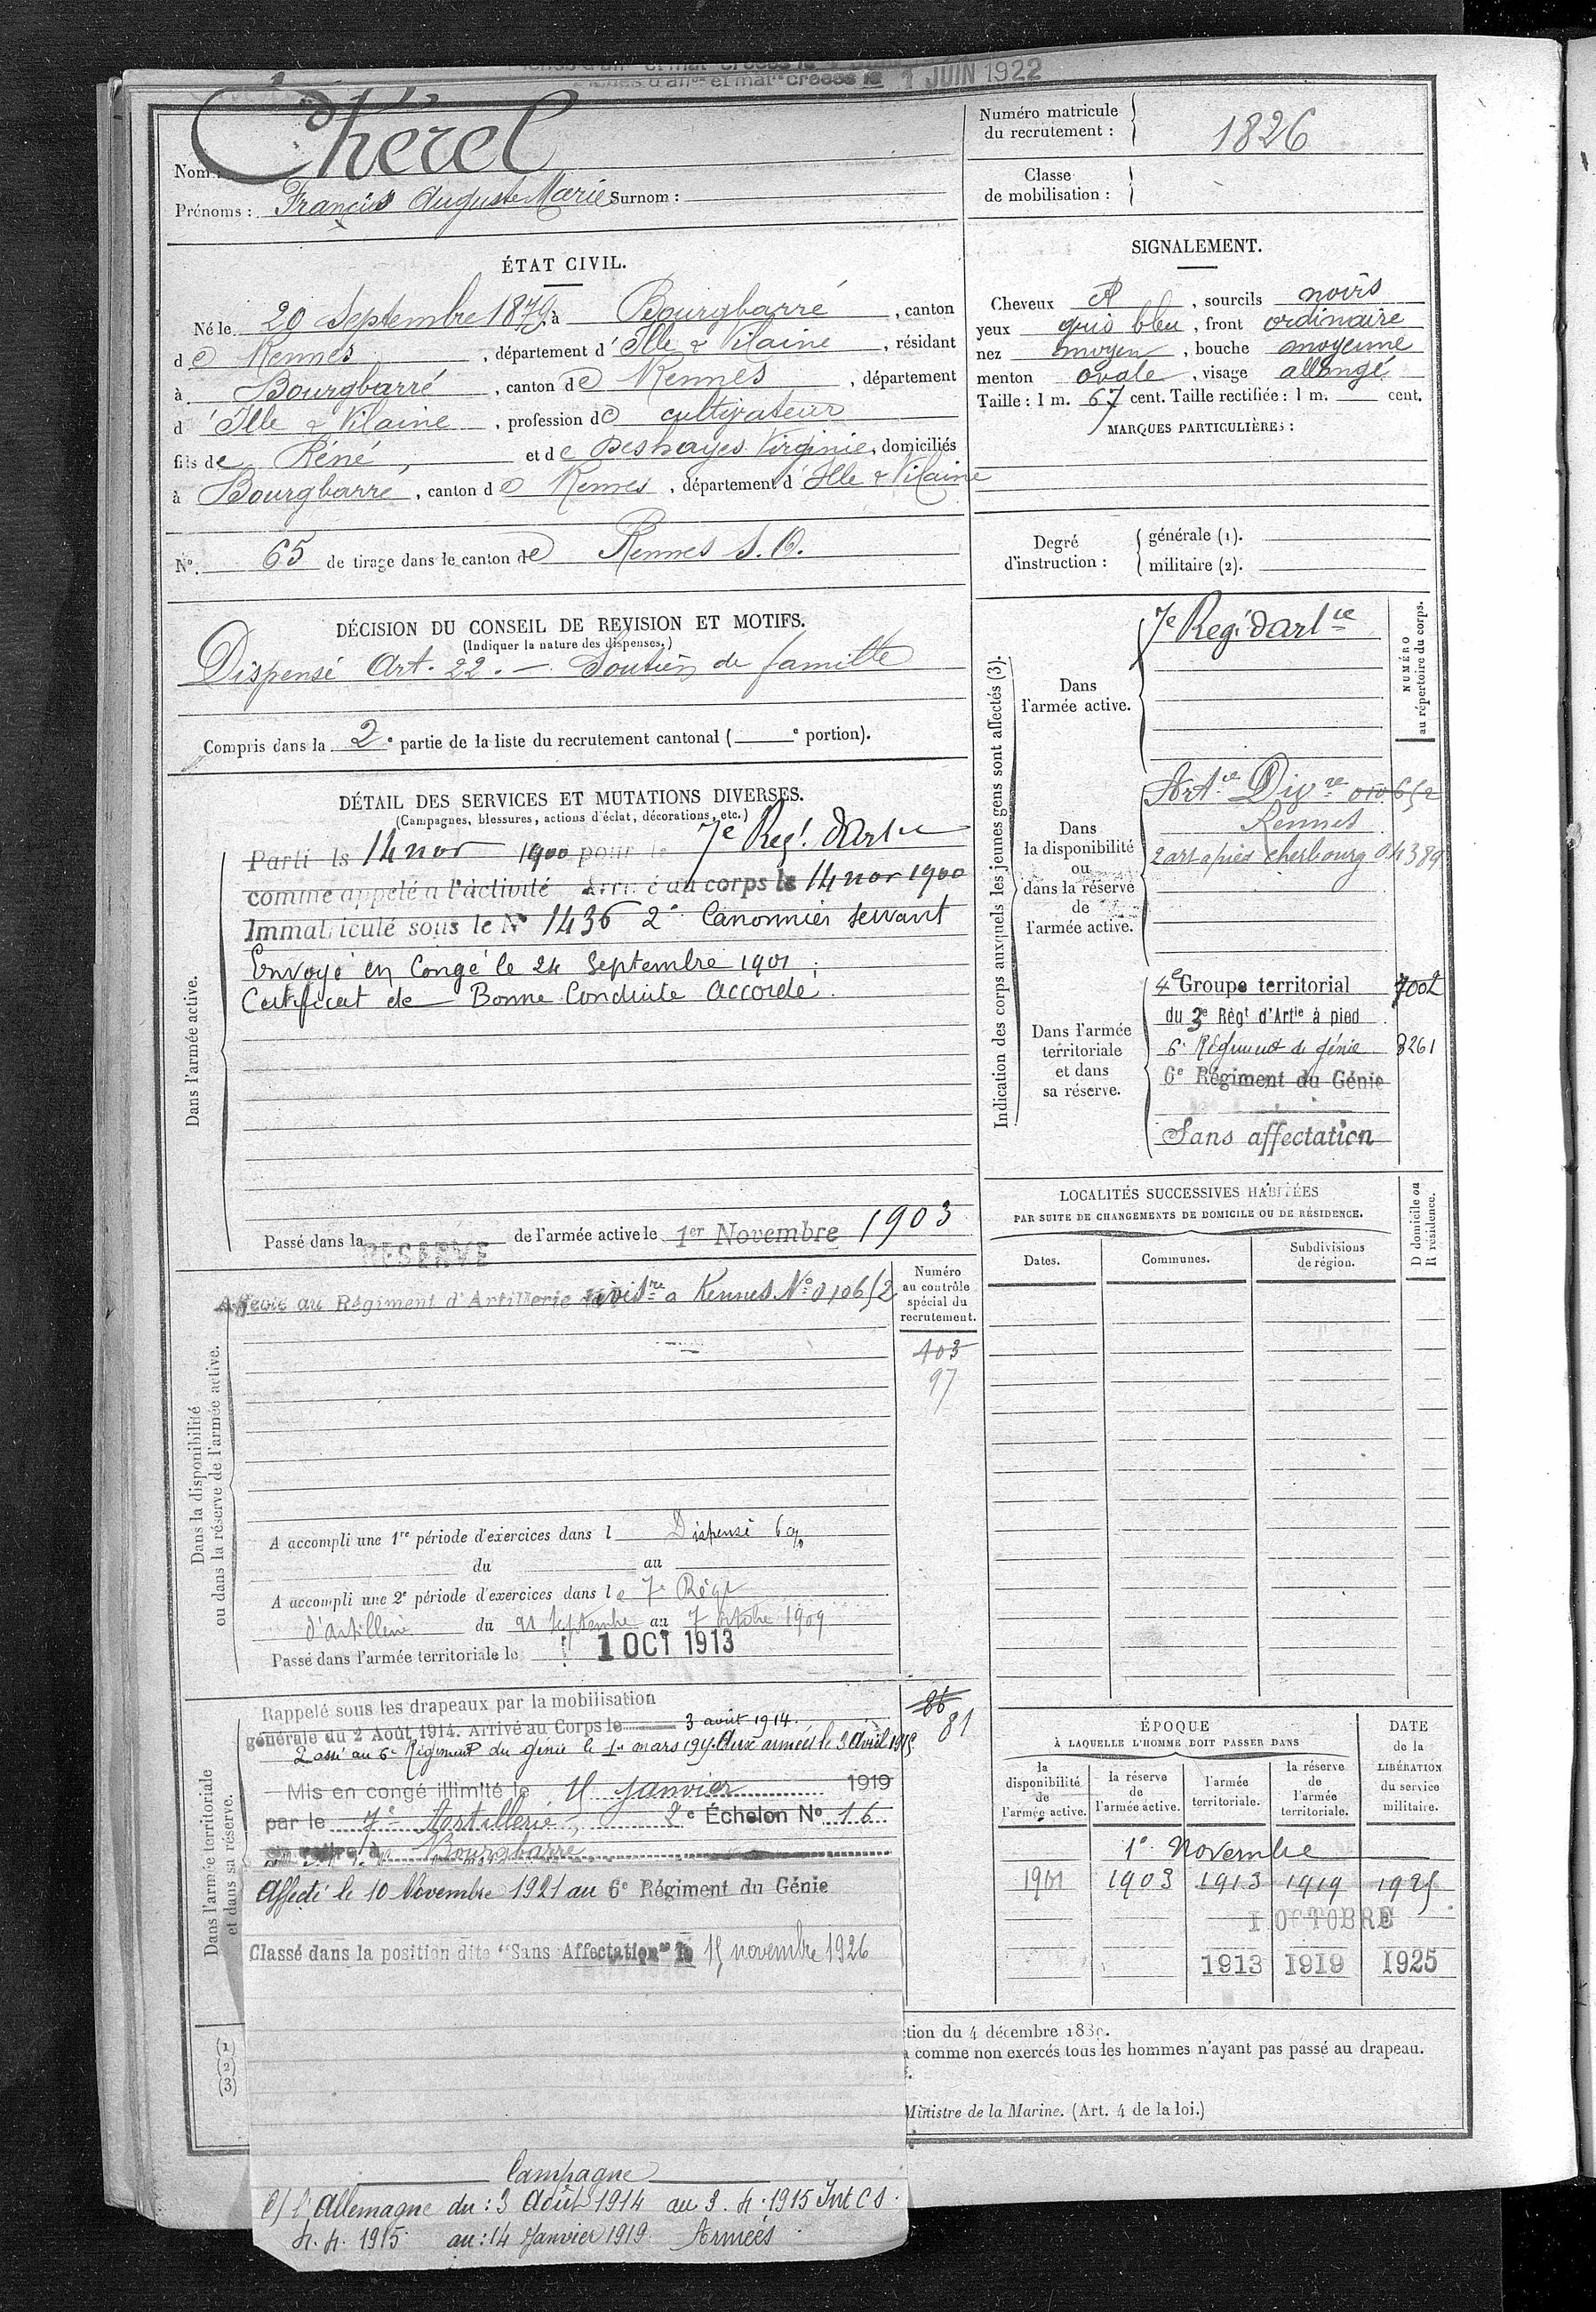 1 JUIN 1922
Nom : Chérel
Prénoms : François Auguste Marie Surnom :
Numéro matricule du recrutement : 1826
Classe de mobilisation :
ÉTAT CIVIL.
Né le 20 Septembre 1879, à Bourgbarré, canton
de Rennes, département d'Ille & Vilaine, résidant
à Bourgbarré, canton de Rennes, département
d'Ille & Vilaine, profession de cultivateur
fils de Réné, et de Deshayes Virginie, domiciliés
à Bourgbarré, canton de Rennes, département d'Ille & Vilaine
No. 65 de tirage dans le canton de Rennes S.O.
SIGNALEMENT.
Cheveux , sourcils noirs
yeux gris bleu, front ordinaire
nez moyen, bouche moyenne
menton ovale, visage allongé
Taille : 1 m. 67 cent. Taille rectifiée : 1 m. cent.
MARQUES PARTICULIÈRES :
Degré d'instruction :
générale (1).
militaire (2).
DÉCISION DU CONSEIL DE REVISION ET MOTIFS.
(Indiquer la nature des dispenses.)
Dispensé Art. 22. — Soutien de famille
Compris dans la 2e partie de la liste du recrutement cantonal ( e portion).
DÉTAIL DES SERVICES ET MUTATIONS DIVERSES.
(Campagnes, blessures, actions d'éclat, décorations, etc.)
Dans l'armée active.
Parti le 14 nov 1900 pour le 7e Regt d'Artie
comme appelé à l'activité Arrivé au corps le 14 nov 1900
Immatriculé sous le No 1436 2e Canonnier servant
Envoyé en Congé le 24 Septembre 1901 ;
Certificat de Bonne Conduite Accordé.
Passé dans la RÉSERVE de l'armée active le 1er Novembre 1903
Indication des corps auxquels les jeunes gens sont affectés (3).
NUMÉRO au répertoire du corps.
Dans l'armée active.
7e Regt d'artce
Dans la disponibilité ou dans la réserve de l'armée active.
Artie Divre 010652
Rennes
2 art à pied Cherbourg 04389
Dans l'armée territoriale et dans sa réserve.
4e Groupe territorial 7002
du 3e Règt d'Artie à pied
6e Régiment de génie 3261
6e Régiment du Génie
Sans affectation
LOCALITÉS SUCCESSIVES HABITÉES
PAR SUITE DE CHANGEMENTS DE DOMICILE OU DE RÉSIDENCE.
Dates. Communes. Subdivisions de région. D domicile ou R résidence.
Dans la disponibilité ou dans la réserve de l'armée active.
Affecté au Régiment d'Artillerie Divisre à Rennes No 010652
Numéro au contrôle spécial du recrutement.
103
97
A accompli une 1re période d'exercices dans l Dispensé
du au
A accompli une 2e période d'exercices dans le 7e Régt
d'artillerie du 21 septembre au 7 octobre 1909
Passé dans l'armée territoriale le 1 OCT 1913
Dans l'armée territoriale et dans sa réserve.
Rappelé sous les drapeaux par la mobilisation
générale du 2 Août 1914. Arrivé au Corps le 3 août 1914.
Passé au 6e Régiment du génie le 1er mars 1915. Aux armées le 3 Avril 1915
86
81
Mis en congé illimité le 15 janvier 1919
par le 7e Artillerie, 2e Échelon No 16
se retire à Bourgbarré
Affecté le 10 Novembre 1921 au 6e Régiment du Génie
Classé dans la position dite "Sans Affectation" le 15 novembre 1926
ÉPOQUE
À LAQUELLE L'HOMME DOIT PASSER DANS
la disponibilité de l'armée active. la réserve de l'armée active. l'armée territoriale. la réserve de l'armée territoriale.
DATE de la LIBÉRATION du service militaire.
1er Novembre
1901 1903 1913 1919 1925
1 OCTOBRE
1913 1919 1925
(1)
(2)
(3)
ction du 4 décembre 1889.
a comme non exercés tous les hommes n'ayant pas passé au drapeau.
Ministre de la Marine. (Art. 4 de la loi.)
Campagne
C/ l'Allemagne du : 3 Août 1914 au 3. 4. 1915 Int CS.
4. 4. 1915 au : 14 Janvier 1919. Armées.